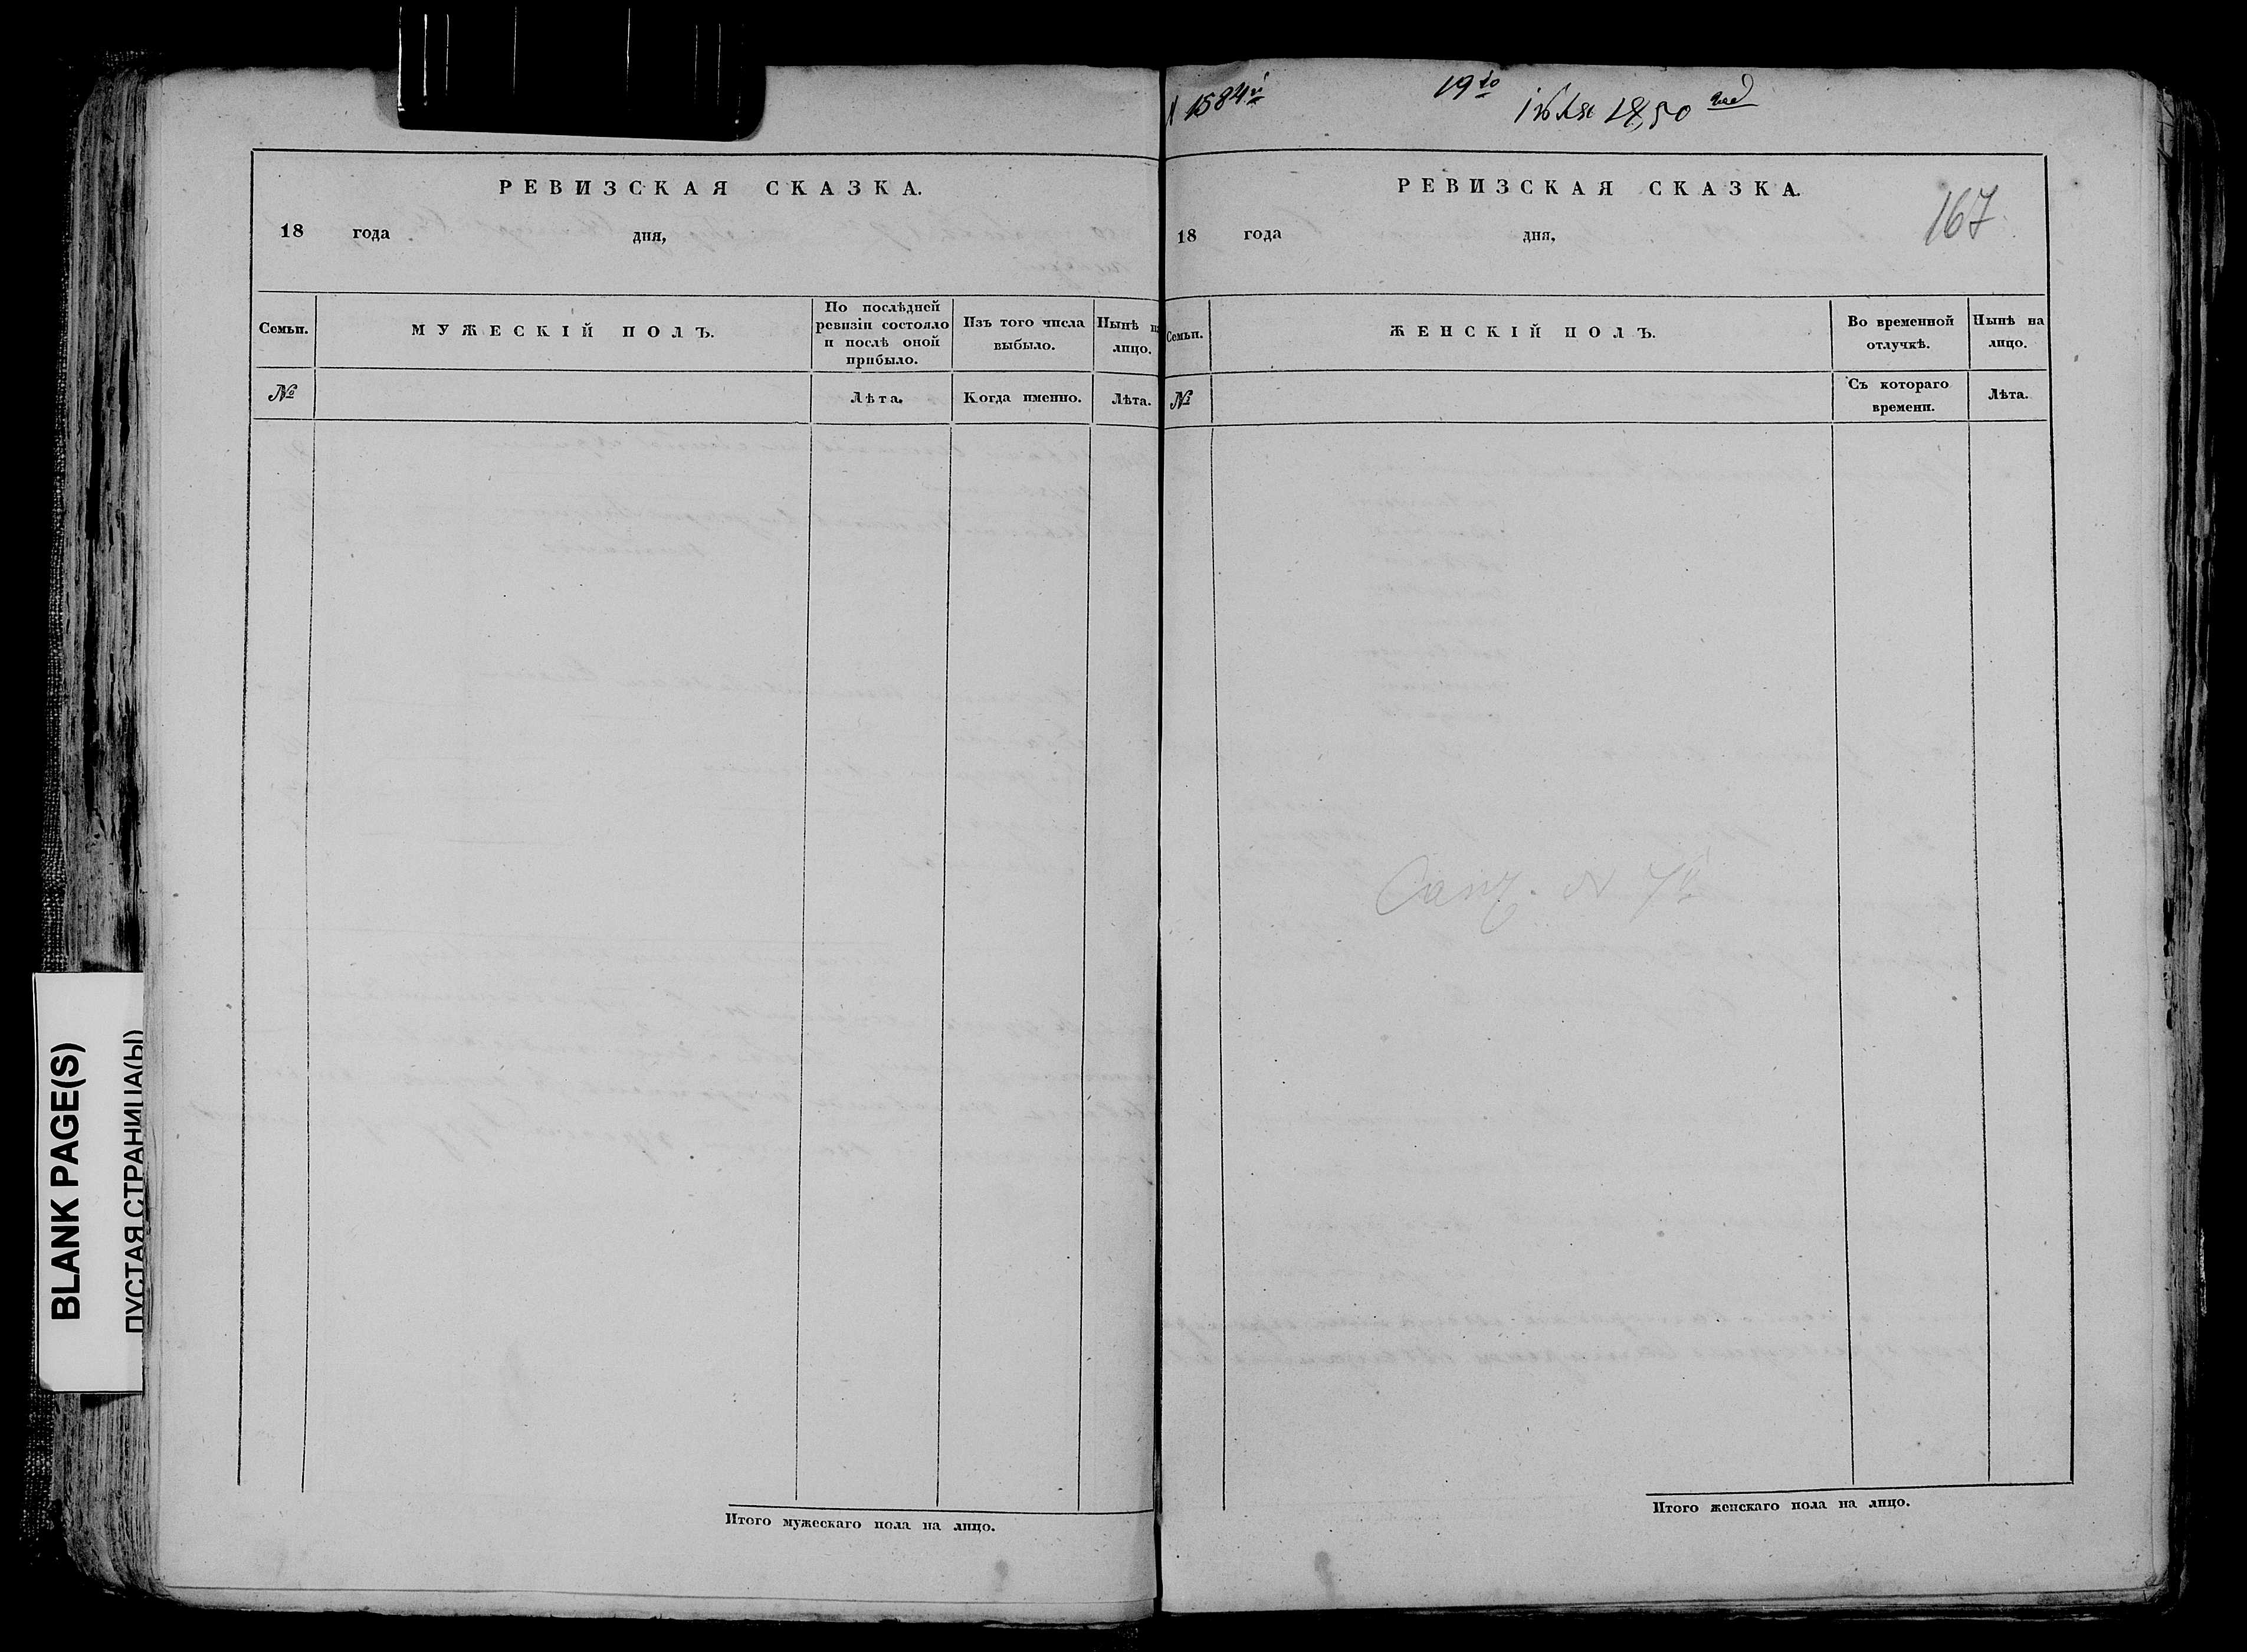 РЕВИЗСКАЯ СКАЗКА.
18 года дня,
Семьи. МУЖЕСКІЙ ПОЛЪ. По послѣдней ревизіи состояло и послѣ оной прибыло. Изъ того числа выбыло. Нынѣ н лицо.
№ Лѣта. Когда именно. Лѣта.
Итого мужескаго пола на лицо.
1584й
19го Июля 1850 год
РЕВИЗСКАЯ СКАЗКА.
167
18 года дня,
Семьи. ЖЕНСКІЙ ПОЛЪ. Во временной отлучкѣ. Нынѣ на лицо.
№ Съ котораго времени. Лѣта.
N 7й
Итого женскаго пола на лицо.
BLANK PAGE(S)
ПУСТАЯ СТРАНИЦА(Ы)